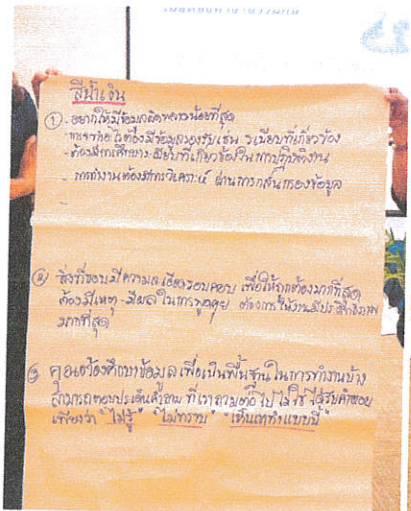 สีน้ำเงิน
① - อยากให้มีข้อมูลผิดพลาดน้อยที่สุด
- การจะทำอะไรต้องมีข้อมูลรองรับเช่น ระเบียบที่เกี่ยวข้อง
- ต้องมีการศึกษาระเบียบที่เกี่ยวข้องในการปฏิบัติงาน
- การทำงานต้องมีการวิเคราะห์ ผ่านการกลั่นกรองข้อมูล
② สิ่งที่ชอบมีความละเอียดรอบคอบ เพื่อให้ถูกต้องมากที่สุด
ต้องมีเหตุ-มีผลในการพูดคุย ต้องการให้งานมีประสิทธิภาพ
มากที่สุด
③ คุณต้องศึกษาข้อมูลเพื่อเป็นพื้นฐานในการทำงานบ้าง
สามารถตอบประเด็นคำถาม ที่เราถามต่อไป ไม่ใช่ได้รับคำตอบ
เพียงว่า "ไม่รู้" "ไม่ทราบ" "เห็นเขาทำแบบนี้"